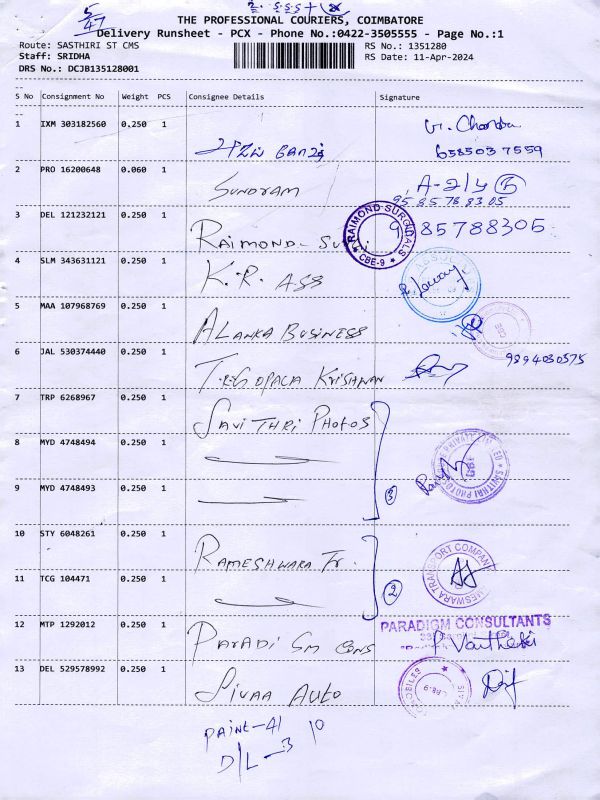 5/47
THE PROFESSIONAL COURIERS, COIMBATORE
Delivery Runsheet - PCX - Phone No.:0422-3505555 - Page No.:1
Route: SASTHIRI ST CMS RS No.: 1351280
Staff: SRIDHA RS Date: 11-Apr-2024
DRS No.: DCJB135128001
S No Consignment No Weight PCS Consignee Details Signature
1 IXM 303182560 0.250 1
6585037559
2 PRO 16200648 0.060 1 SUNDRAM
9585768305
3 DEL 121232121 0.250 1 RAIMOND- 985788305
RAIMOND SURGICALS
CBE-9
4 SLM 343631121 0.250 1 K.R. ASS
5 MAA 107968769 0.250 1 ALANKA BUSINESS
6 JAL 530374440 0.250 1 KRISHNAN 9894030575
7 TRP 6268967 0.250 1 SAVITHRI PHOTOS
8 MYD 4748494 0.250 1
SAVITHRI PHOTOS PRIVATE LIMITED
9 MYD 4748493 0.250 1 3
10 STY 6048261 0.250 1 RAMESHWARA Tr.
RAMESWARA TRANSPORT COMPANY
11 TCG 104471 0.250 1 2
12 MTP 1292012 0.250 1 PARADISM CONS PARADIGM CONSULTANTS
13 DEL 529578992 0.250 1 SIVAA AUTO
PAINT-41 10
D/L-3